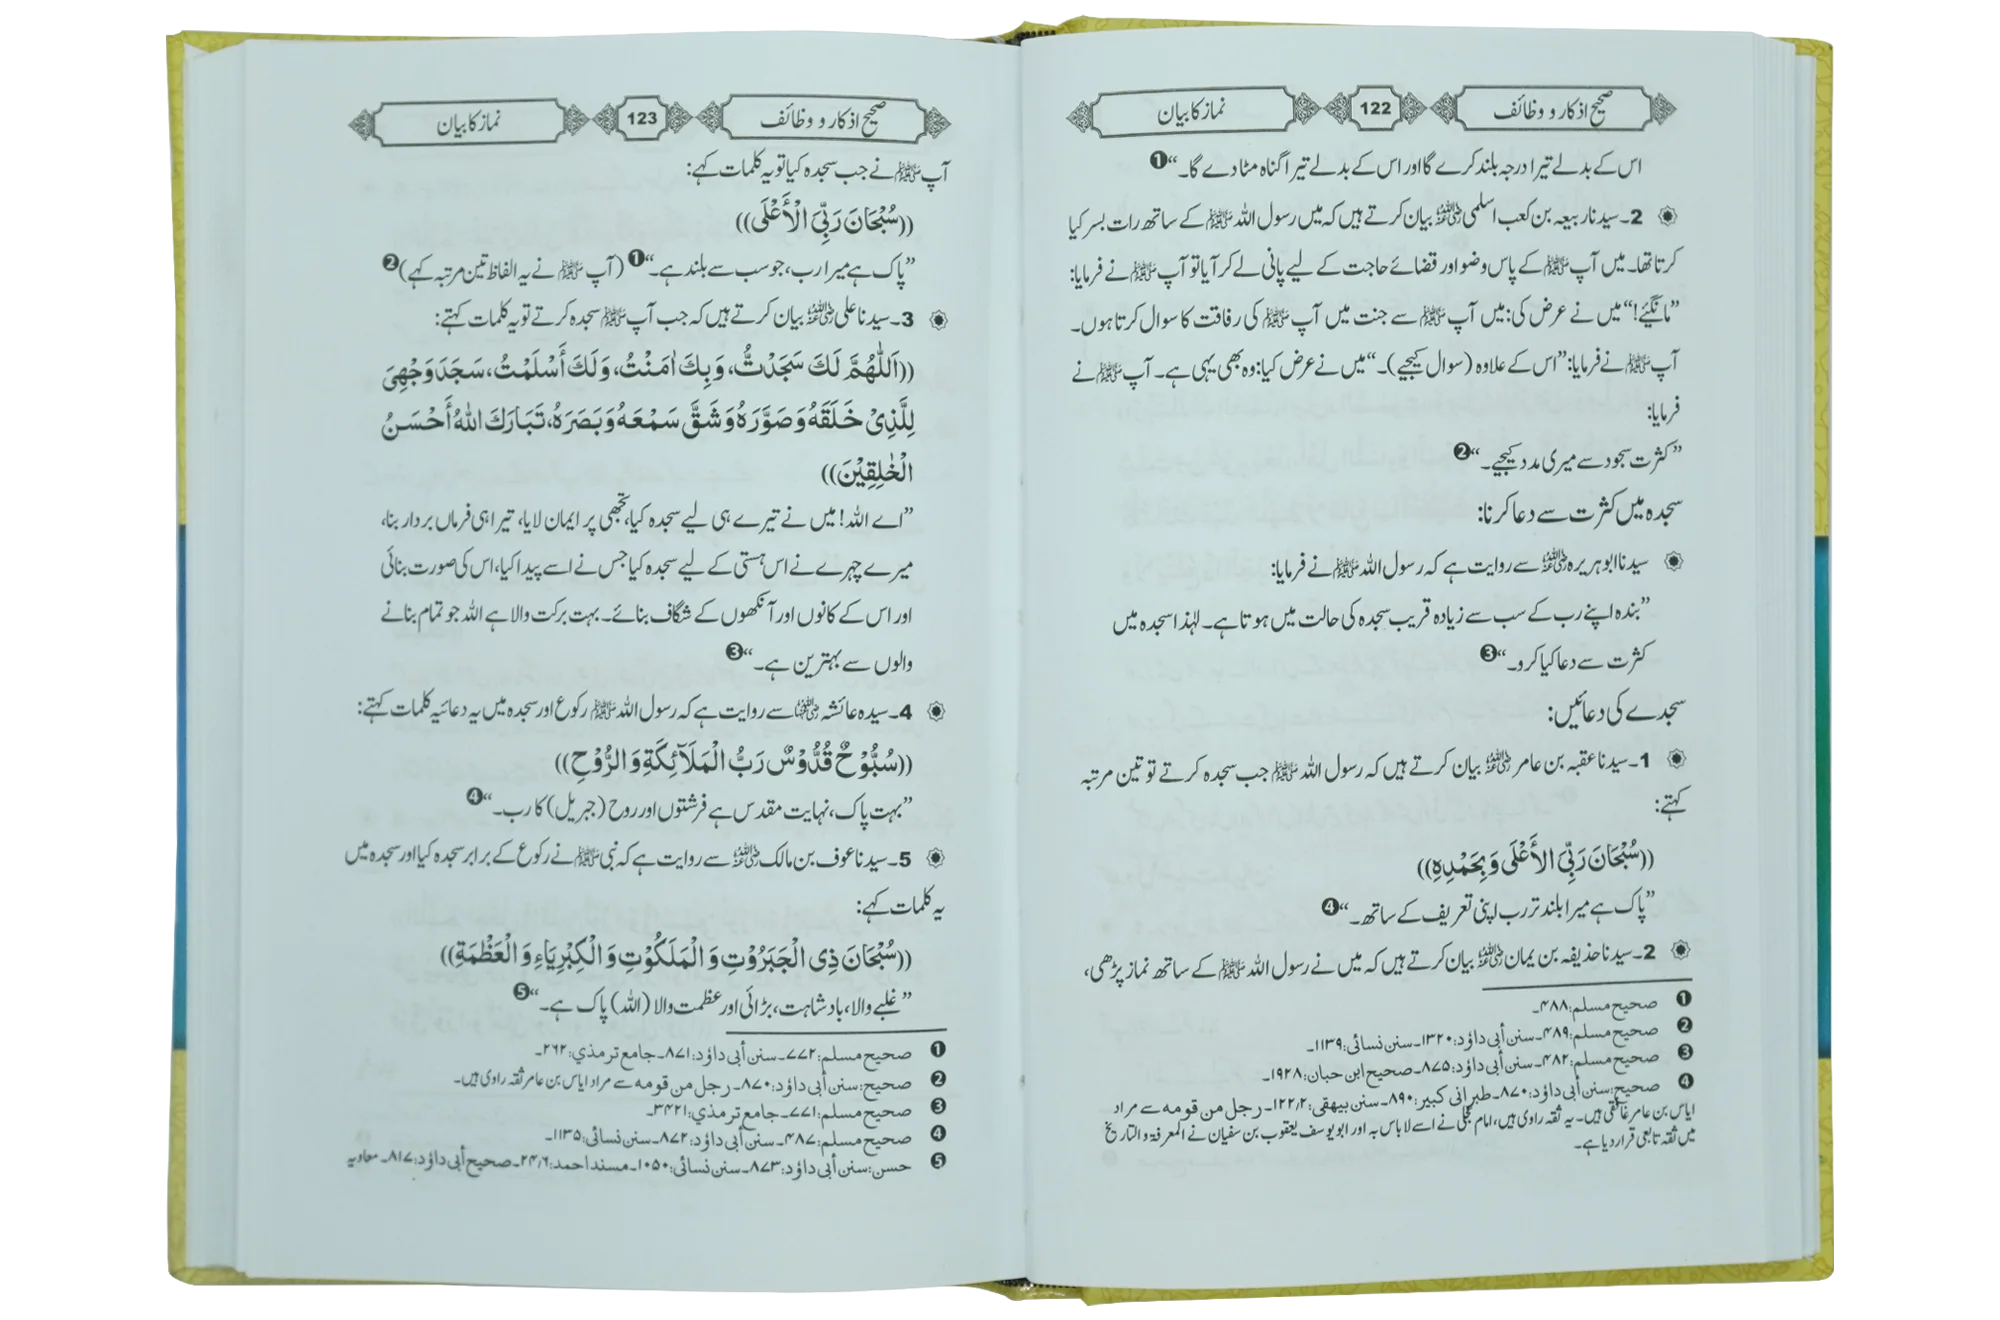 صحیح اذکار و وظائف 122 نماز کا بیان
اس کے بدلے تیرا درجہ بلند کرے گا اور اس کے بدلے تیرا گناہ مٹا دے گا۔“ ❶
2۔ سیدنا ربیعہ بن کعب اسلمی رضی اللہ عنہ بیان کرتے ہیں کہ میں رسول اللہ ﷺ کے ساتھ رات بسر کیا
کرتا تھا۔ میں آپ ﷺ کے پاس وضو اور قضائے حاجت کے لیے پانی لے کر آیا تو آپ ﷺ نے فرمایا:
”مانگیے!“ میں نے عرض کی: میں آپ ﷺ سے جنت میں آپ ﷺ کی رفاقت کا سوال کرتا ہوں۔
آپ ﷺ نے فرمایا: ”اس کے علاوہ (سوال کیجیے)۔“ میں نے عرض کیا: وہ بھی یہی ہے۔ آپ ﷺ نے
فرمایا:
”کثرت سجود سے میری مدد کیجیے۔“ ❷
سجدہ میں کثرت سے دعا کرنا:
سیدنا ابوہریرہ رضی اللہ عنہ سے روایت ہے کہ رسول اللہ ﷺ نے فرمایا:
”بندہ اپنے رب کے سب سے زیادہ قریب سجدہ کی حالت میں ہوتا ہے۔ لہٰذا سجدہ میں
کثرت سے دعا کیا کرو۔“ ❸
سجدے کی دعائیں:
1۔ سیدنا عقبہ بن عامر رضی اللہ عنہ بیان کرتے ہیں کہ رسول اللہ ﷺ جب سجدہ کرتے تو تین مرتبہ
کہتے:
((سُبْحَانَ رَبِّیَ الأَعْلَی وَبِحَمْدِہِ))
”پاک ہے میرا بلند تر رب اپنی تعریف کے ساتھ۔“ ❹
2۔ سیدنا حذیفہ بن یمان رضی اللہ عنہ بیان کرتے ہیں کہ میں نے رسول اللہ ﷺ کے ساتھ نماز پڑھی،
❶ صحیح مسلم: ۴۸۸۔
❷ صحیح مسلم: ۴۸۹۔ سنن أبی داؤد: ۱۳۲۰۔ سنن نسائی: ۱۱۳۹۔
❸ صحیح مسلم: ۴۸۲۔ سنن أبی داؤد: ۸۷۵۔ صحیح ابن حبان: ۱۹۲۸۔
❹ صحیح: سنن أبی داؤد: ۸۷۰۔ طبرانی کبیر: ۸۹۰۔ سنن بیھقی: ۱۲۲/۲۔ رجل من قومہ سے مراد
ایاس بن عامر غافقی ہیں۔ یہ ثقہ راوی ہیں، امام عجلی نے اسے لا باس بہ اور ابو یوسف یعقوب بن سفیان نے المعرفۃ والتاریخ
میں ثقہ تابعی قرار دیا ہے۔
صحیح اذکار و وظائف 123 نماز کا بیان
آپ ﷺ نے جب سجدہ کیا تو یہ کلمات کہے:
((سُبْحَانَ رَبِّیَ الْأَعْلَی))
”پاک ہے میرا رب، جو سب سے بلند ہے۔“ ❶ (آپ ﷺ نے یہ الفاظ تین مرتبہ کہے) ❷
3۔ سیدنا علی رضی اللہ عنہ بیان کرتے ہیں کہ جب آپ ﷺ سجدہ کرتے تو یہ کلمات کہتے:
((اَللّٰھُمَّ لَکَ سَجَدْتُّ، وَبِکَ اٰمَنْتُ، وَلَکَ أَسْلَمْتُ، سَجَدَ وَجْھِیَ
لِلَّذِیْ خَلَقَہُ وَصَوَّرَہُ وَشَقَّ سَمْعَہُ وَبَصَرَہُ، تَبَارَکَ اللّٰہُ أَحْسَنُ
الْخٰلِقِیْنَ))
”اے اللہ! میں نے تیرے ہی لیے سجدہ کیا، تجھی پر ایمان لایا، تیرا ہی فرماں بردار بنا،
میرے چہرے نے اس ہستی کے لیے سجدہ کیا جس نے اسے پیدا کیا، اس کی صورت بنائی
اور اس کے کانوں اور آنکھوں کے شگاف بنائے۔ بہت برکت والا ہے اللہ جو تمام بنانے
والوں سے بہترین ہے۔“ ❸
4۔ سیدہ عائشہ رضی اللہ عنہا سے روایت ہے کہ رسول اللہ ﷺ رکوع اور سجدہ میں یہ دعائیہ کلمات کہتے:
((سُبُّوْحٌ قُدُّوْسٌ رَبُّ الْمَلَآئِکَۃِ وَ الرُّوْحِ))
”بہت پاک، نہایت مقدس ہے فرشتوں اور روح (جبریل) کا رب۔“ ❹
5۔ سیدنا عوف بن مالک رضی اللہ عنہ سے روایت ہے کہ نبی ﷺ نے رکوع کے برابر سجدہ کیا اور سجدہ میں
یہ کلمات کہے:
((سُبْحَانَ ذِی الْجَبَرُوْتِ وَ الْمَلَکُوْتِ وَ الْکِبْرِیَاءِ وَ الْعَظْمَۃِ))
”غلبے والا، بادشاہت، بڑائی اور عظمت والا (اللہ) پاک ہے۔“ ❺
❶ صحیح مسلم: ۷۷۲۔ سنن أبی داؤد: ۸۷۱۔ جامع ترمذی: ۲۶۲۔
❷ صحیح: سنن أبی داؤد: ۸۷۰۔ رجل من قومہ سے مراد ایاس بن عامر ثقہ راوی ہیں۔
❸ صحیح مسلم: ۷۷۱۔ جامع ترمذی: ۳۴۲۱۔
❹ صحیح مسلم: ۴۸۷۔ سنن أبی داؤد: ۸۷۲۔ سنن نسائی: ۱۱۳۵۔
❺ حسن: سنن أبی داؤد: ۸۷۳۔ سنن نسائی: ۱۰۵۰۔ مسند احمد: ۲۴/۶۔ صحیح أبی داؤد: ۸۱۷۔ معاویہ